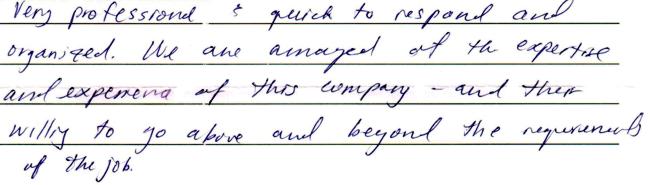 Very professional & quick to respond and
organized. We are amazed at the expertise
and experience of this company - and their
willing to go above and beyond the requirements
of the job.